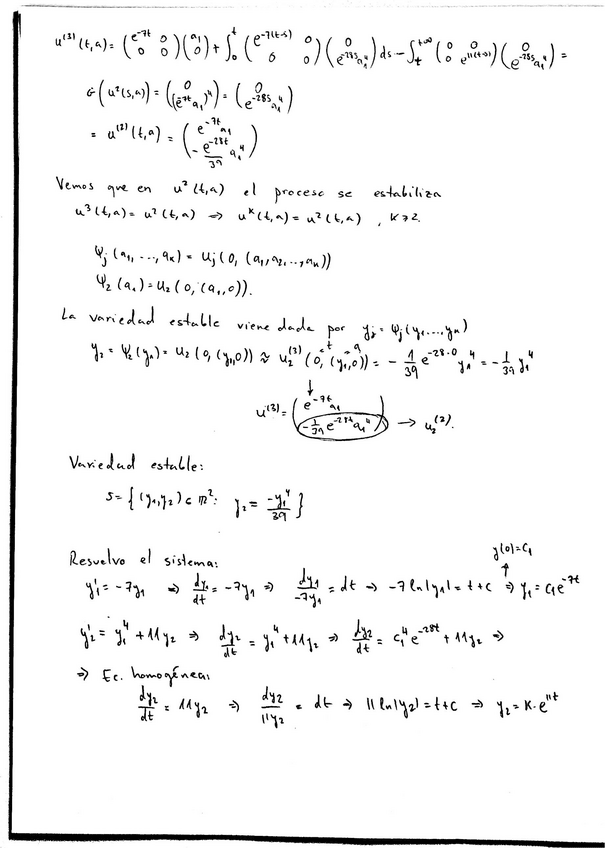 u^(3)(t,a) = (e^-7t 0 / 0 0)(a₁ / 0) + ∫₀^t (e^-7(t-s) 0 / 0 0)(0 / e^-28s a₁⁴) ds − ∫_t^+∞ (0 0 / 0 e^11(t-s))(0 / e^-28s a₁⁴) =
G(u²(s,a)) = (0 / (e^-7t a₁)⁴) = (0 / e^-28s a₁⁴)
= u^(2)(t,a) = (e^-7t a₁ / -e^-28t/39 a₁⁴)
Vemos que en u²(t,a) el proceso se estabiliza
u³(t,a) = u²(t,a) ⇒ u^k(t,a) = u²(t,a) , k>2.
Ψj(a₁,...,aₖ) = uj(0, (a₁,a₂,...,aₖ))
Ψ₂(a₁) = u₂(0, (a₁,0)).
La variedad estable viene dada por yj = Ψj(y₁...,yₖ)
t a
y₂ = Ψ₂(y₁) = u₂(0, (y₁,0)) ≈ u₂^(3)(0, (y₁,0)) = - 1/39 e^-28·0 y₁⁴ = - 1/39 y₁⁴
↓
u^(2) = (e^-7t a₁ / -1/39 e^-28t a₁⁴) → u₂^(2).
Variedad estable:
S = {(y₁,y₂) ∈ ℝ²: y₂ = -y₁⁴/39}
y(0)=C₁
Resuelvo el sistema: ↑
y₁' = -7y₁ ⇒ dy₁/dt = -7y₁ ⇒ dy₁/-7y₁ = dt → -7 ln|y₁| = t+c ⇒ y₁ = c₁e^-7t
y₂' = y₁⁴ + 11y₂ ⇒ dy₂/dt = y₁⁴ + 11y₂ ⇒ dy₂/dt = c₁⁴ e^-28t + 11y₂ ⇒
⇒ Ec. homogénea:
dy₂/dt = 11y₂ ⇒ dy₂/11y₂ = dt ⇒ 11 ln|y₂| = t+c ⇒ y₂ = K·e^11t